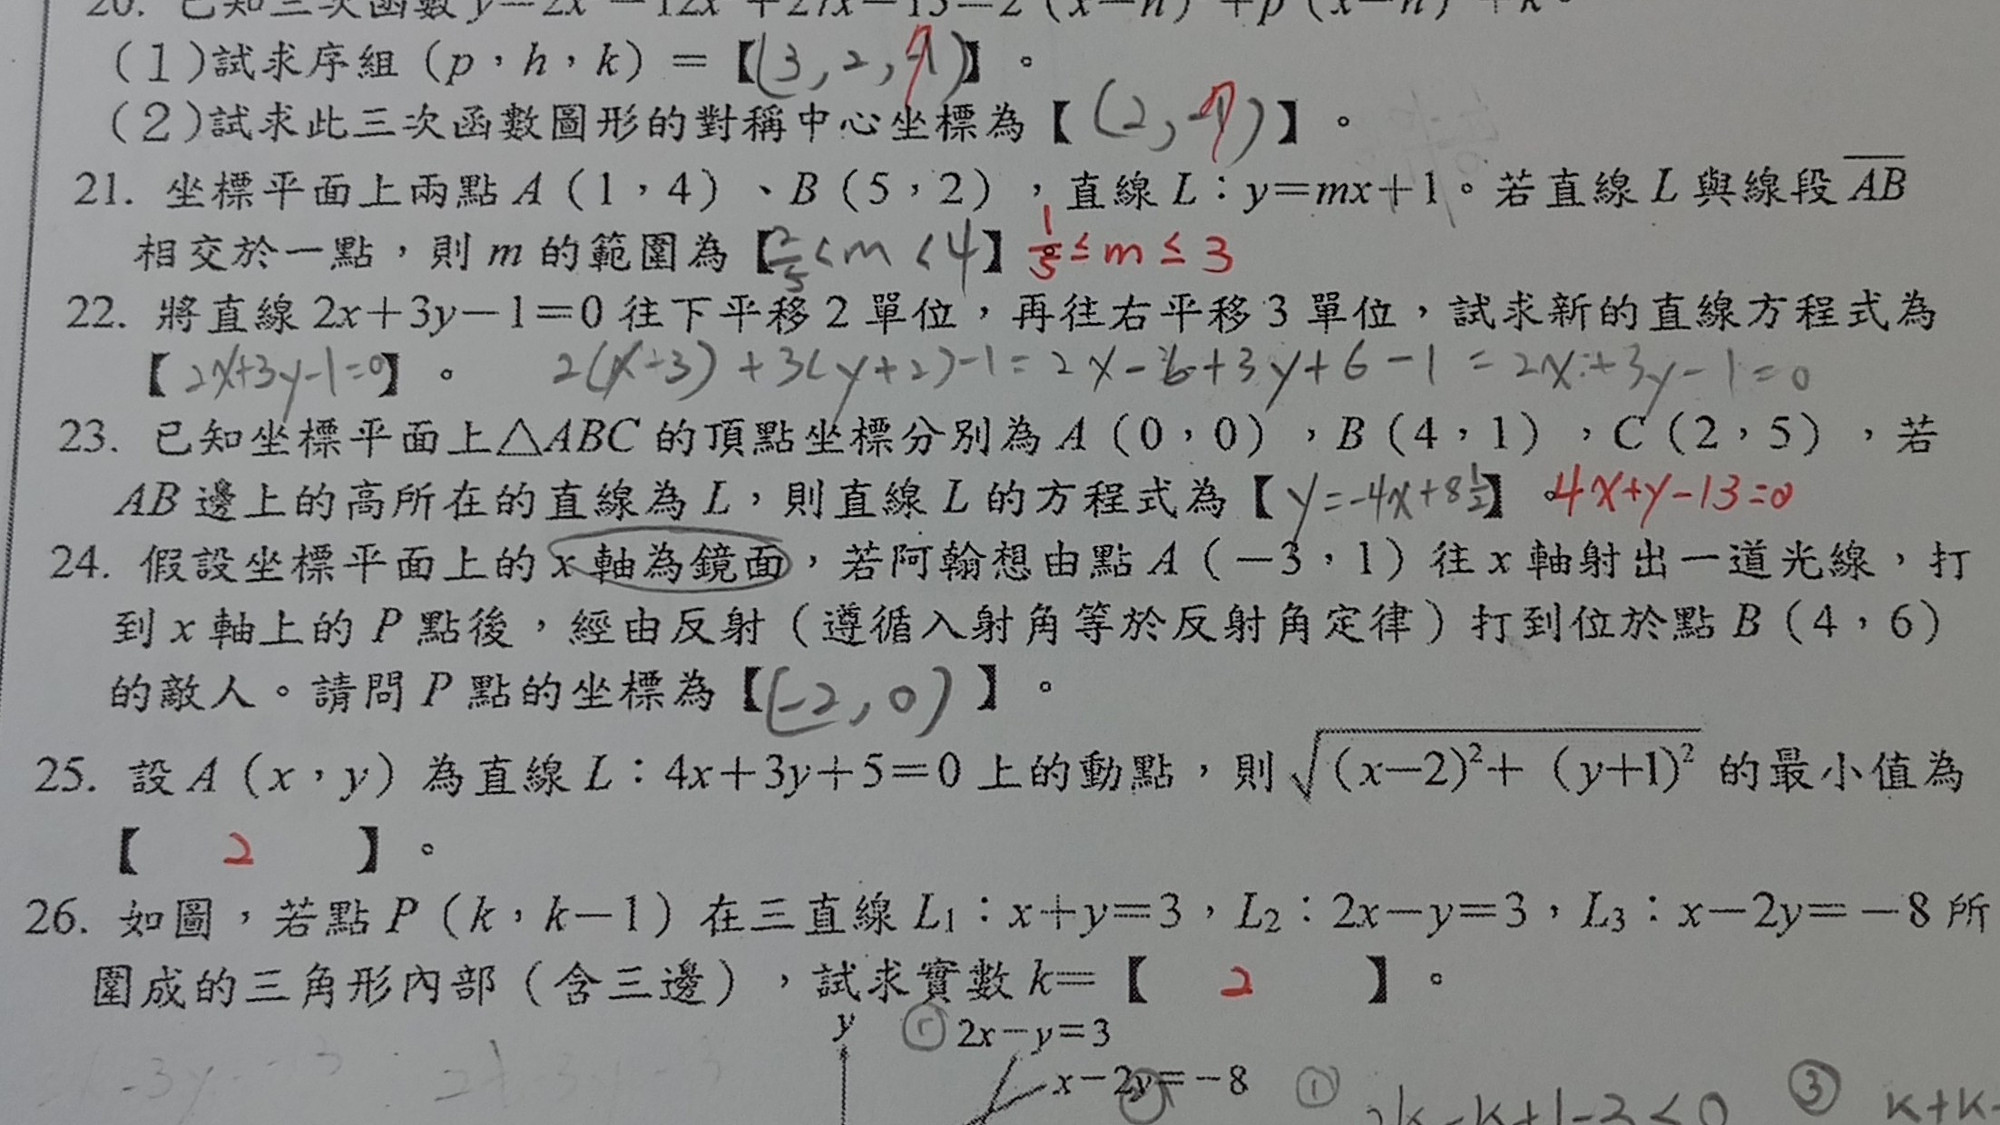 20. 已知三次函數 y=2x³-12x²+27x-13=2(x-h)³+p(x-h)+k。
(1)試求序組(p,h,k)=【(3,2,9)】。
(2)試求此三次函數圖形的對稱中心坐標為【(2,9)】。
21. 坐標平面上兩點A(1,4)、B(5,2),直線L:y=mx+1。若直線L與線段AB
相交於一點,則m的範圍為【2/5<m<4】 1/5≤m≤3
22. 將直線2x+3y-1=0往下平移2單位,再往右平移3單位,試求新的直線方程式為
【2x+3y-1=0】。 2(x-3)+3(y+2)-1=2x-6+3y+6-1=2x+3y-1=0
23. 已知坐標平面上△ABC的頂點坐標分別為A(0,0),B(4,1),C(2,5),若
AB邊上的高所在的直線為L,則直線L的方程式為【y=-4x+8½】。4x+y-13=0
24. 假設坐標平面上的x軸為鏡面,若阿翰想由點A(-3,1)往x軸射出一道光線,打
到x軸上的P點後,經由反射(遵循入射角等於反射角定律)打到位於點B(4,6)
的敵人。請問P點的坐標為【(-2,0)】。
25. 設A(x,y)為直線L:4x+3y+5=0上的動點,則√(x-2)²+(y+1)²的最小值為
【 2 】。
26. 如圖,若點P(k,k-1)在三直線L₁:x+y=3,L₂:2x-y=3,L₃:x-2y=-8所
圍成的三角形內部(含三邊),試求實數k=【 2 】。
y 2x-y=3
x-2y=-8 ① 2k-k+1-3<0 ③ k+k-